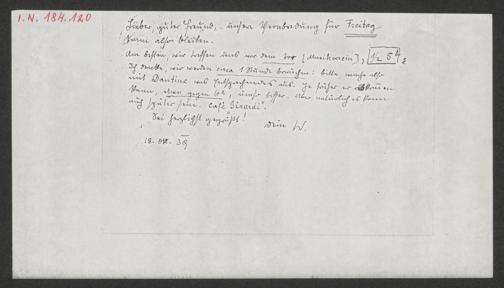 I.N. 184.120
Lieber, guter Freund, - unsere Verabredung für Freitag
kann also bleiben.
Am besten, wir treffen uns vor dem Tor [Musikverein], 1/2 5 h
Ich denke, wir werden circa 1 Stunde brauchen: bitte, mache also
mit Dantine was Entsprechendes aus. Je früher er kommen
kann, eben gegen 6h, umso besser. Aber natürlich es kann
auch später sein. Café Girardi".
Sei herzlichst gegrüßt!
Dein W.
18. Okt. 39